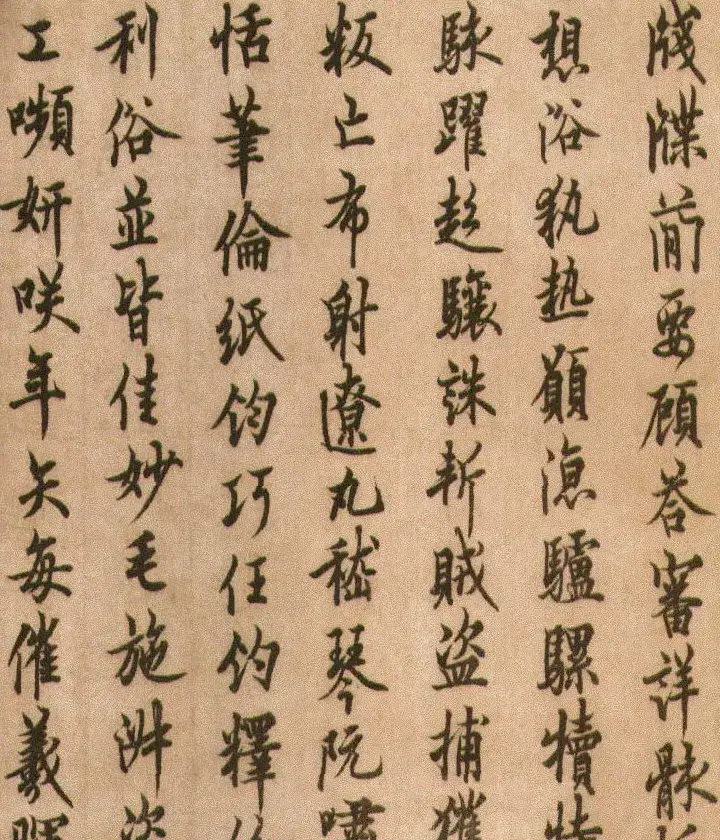 牋牒簡要顧答審詳骸
想浴執熱願涼驢騾犢特
駭躍超驤誅斬賊盜捕獲
叛亡布射遼丸嵇琴阮嘯
恬筆倫紙鈞巧任鈞釋紛
利俗並皆佳妙毛施淑姿
工嚬妍咲年矢每催羲暉